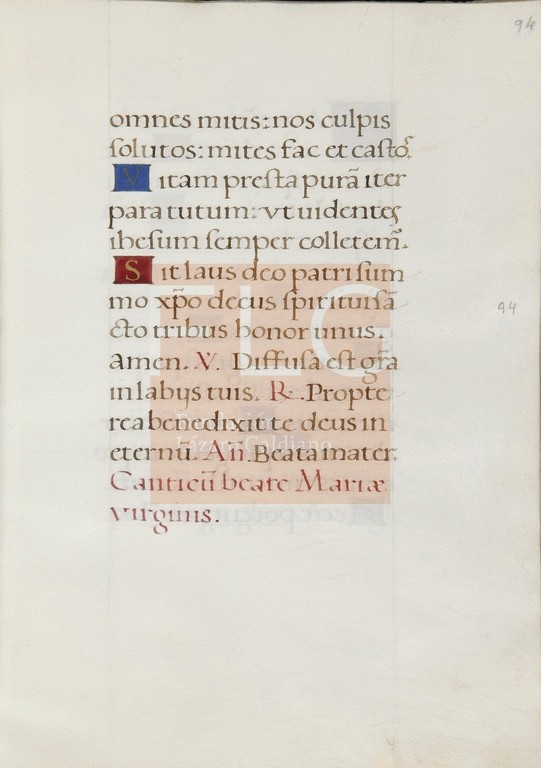 94
omnes mitis: nos culpis
solutos: mites fac et castos.
Vitam presta purã iter
para tutum: vt uidentes
ihesum semper colletem̃.
Sit laus deo patri sum
mo xp̃o decus spiritui sã
cto tribus honor unus.
Amen. V. Diffusa est gr̃a
in labijs tuis. R. Propte
rea benedixit te deus in
eternũ. Añ. Beata mater.
Canticũ beate Mariæ
virginis.
94
FLG
Fundación
Lázaro Galdiano